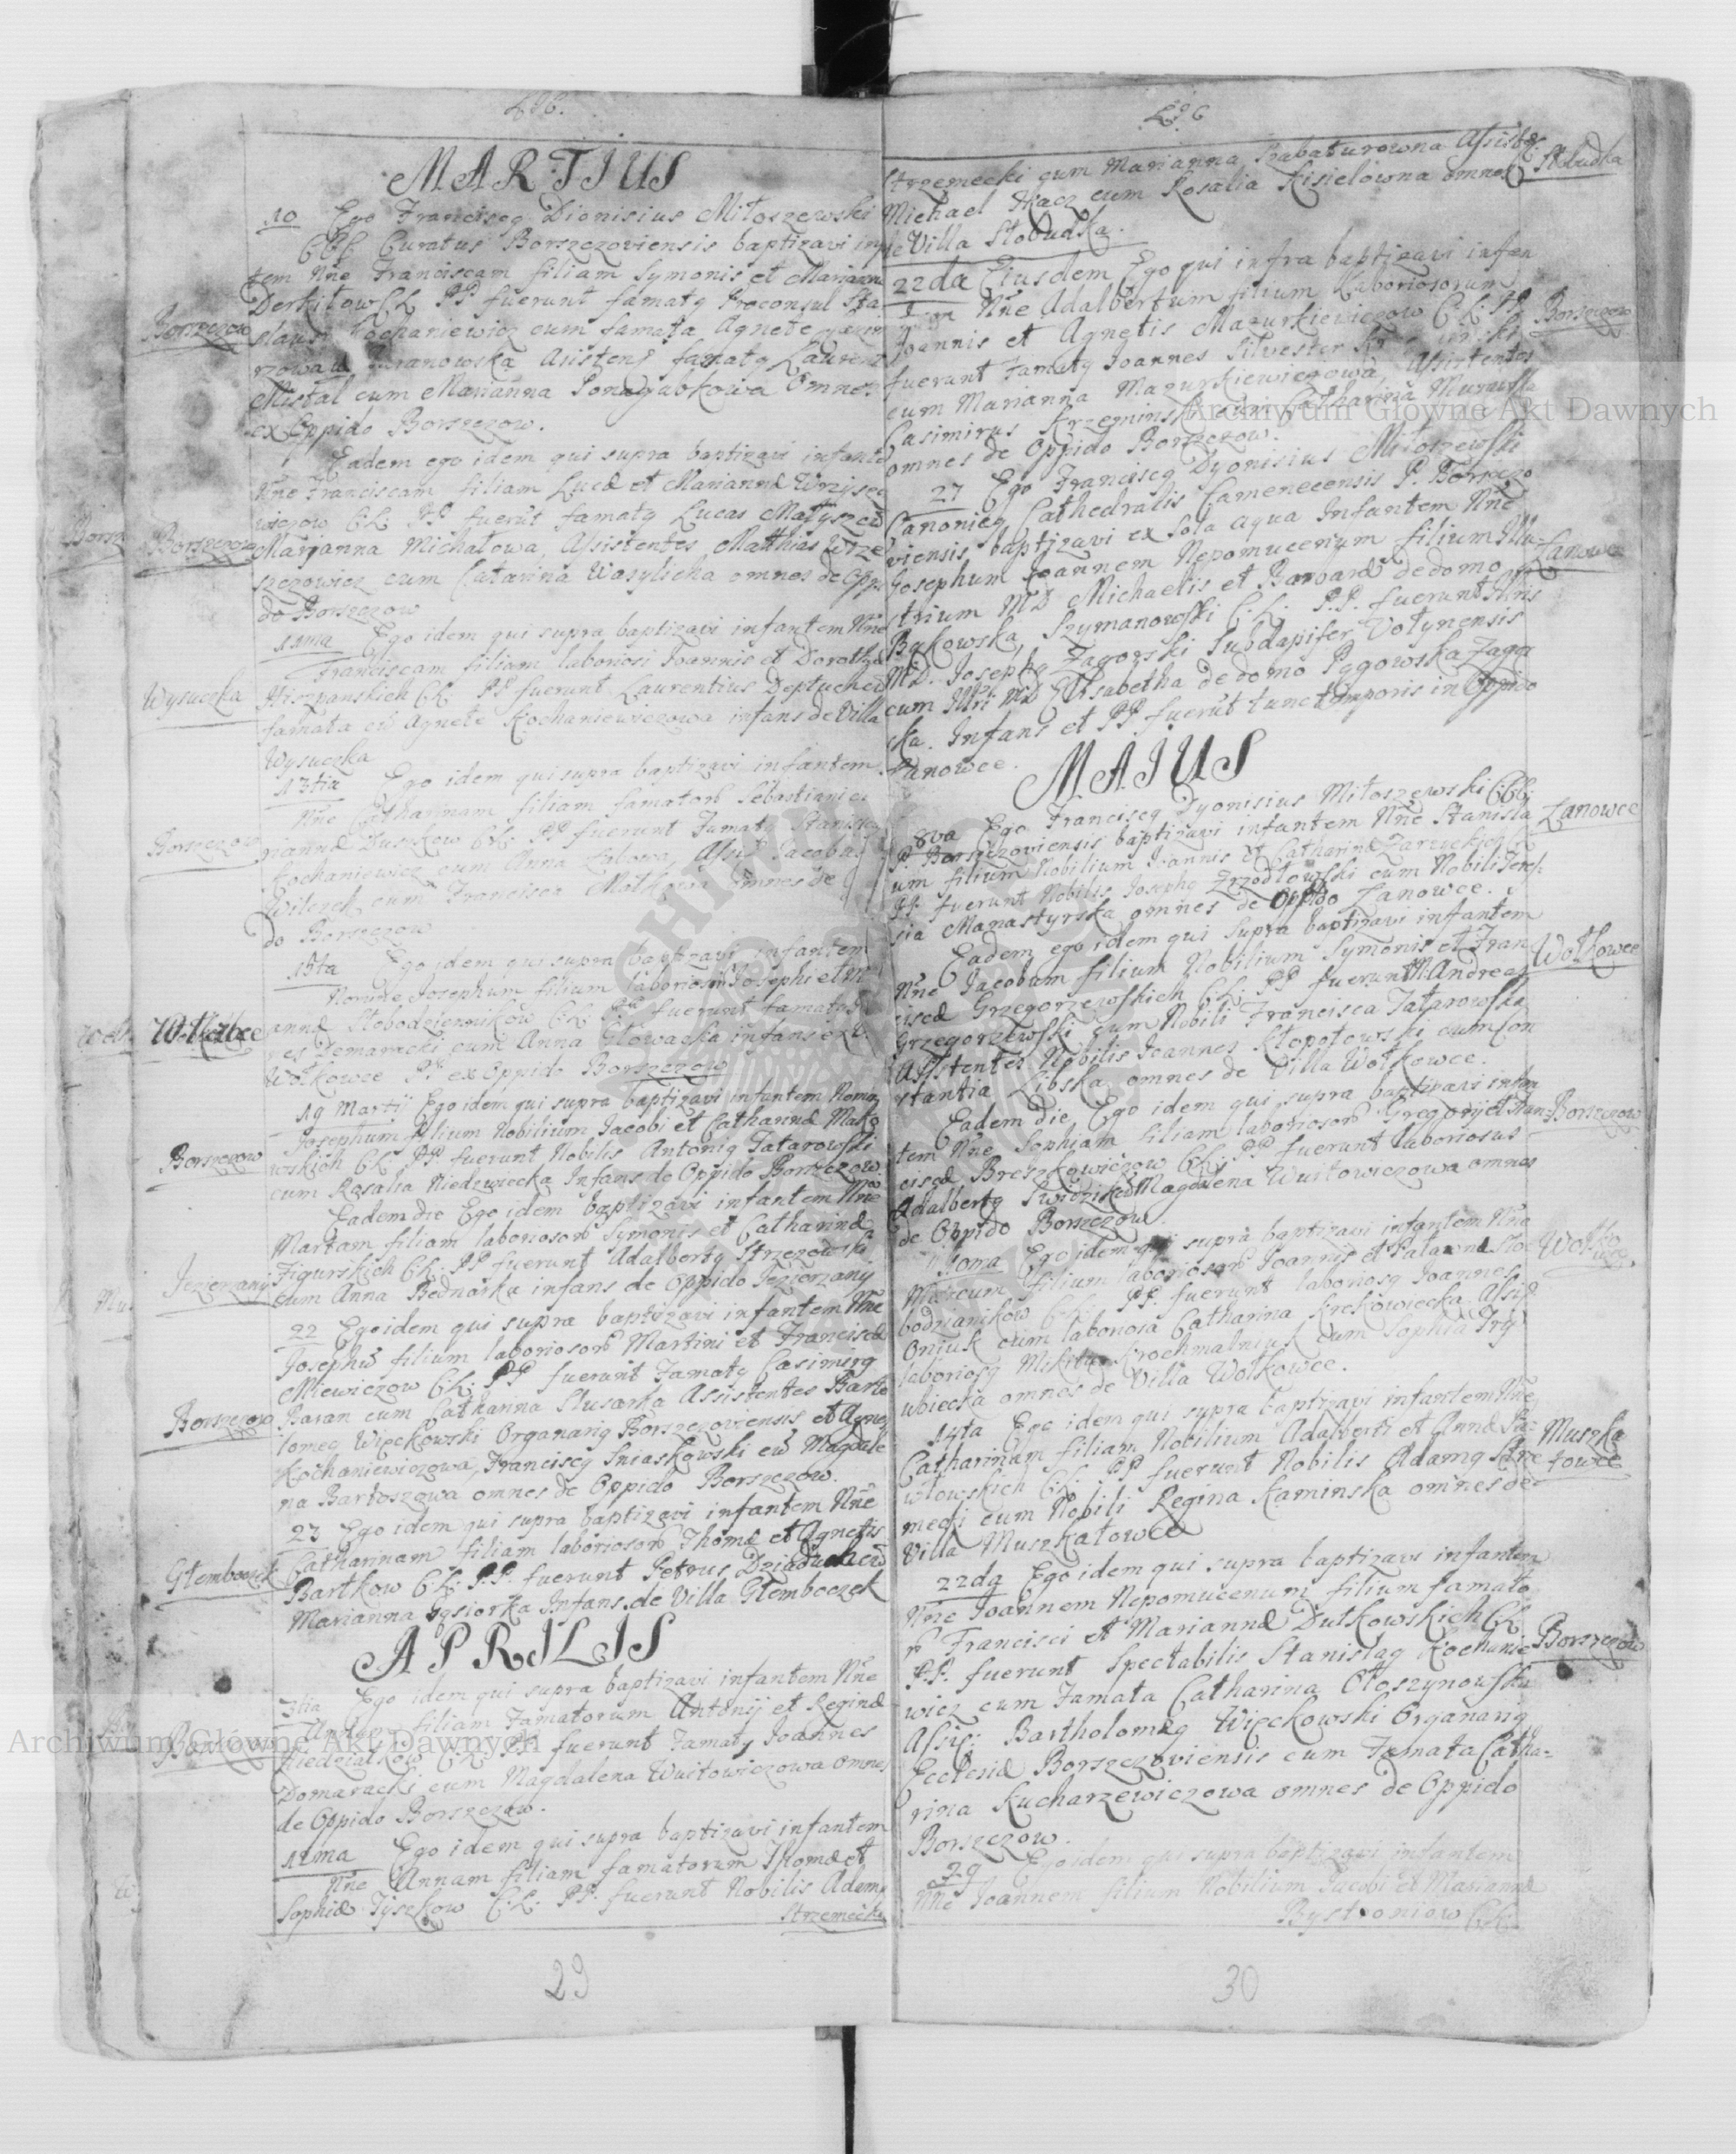 MARTIUS
10 Ego Franciscq Dionisius Miłoszewski
CCC Curatus Borszczoviensis baptizavi infan
tem Nñe Franciscam filiam Symonis et Marianna
Derkitow C.L. PP fuerunt famatq Proconsul Sta
Borszczow
slaus Kochaniewicz cum famata Agnete
Baranowska Asistens famatq Laurent
Mistal cum Marianna omnes
ex Oppido Borszczow.
Eadem ego idem qui supra baptizavi infante
Nñe Franciscam filiam Lucæ et Mariannæ
C.L. PP fuerũt famatq Lucas
Borszczow
Marjanna Michałowa, Assistentes Matthias Wrze
szczowicz cum Catarina Wasylicha omnes de Oppi
do Borszczow
11ma Ego idem qui supra baptizavi infantem Nñe
Franciscam filiam laboriosi Joannis et Dorothæ
Wysuczka
Hiszpanskich C.L. PP fuerunt Laurentius
famata cũ Agnete Kochaniewiczowa infans de Villa
Wysuczka
13tia Ego idem qui supra baptizavi infantem
Nñe Catharinam filiam famatorũ Sebastiani et
Borszczow
C.L. PP fuerunt Famatq Stanislaq
Kochaniewicz cum Anna Assist Jacobus
Wilczek cum Francisca omnes de
do Borszczow
15ta Ego idem qui supra baptizavi infantem
Nomine Josephum filium laboriosũ Josephi et M
Wołkowce
annæ Słobodzennikow C.L. PP fuerunt famatq
nes Demaracki cum Anna Głowacka infans ex V.
Wołkowce PP ex Oppido Borszczow
19 Martij Ego idem qui supra baptizavi infantem Nomin
Josephum filium Nobilium Jacobi et Catharinæ Mako
Borszczow
wskich C.L. PP fuerunt Nobilis Antoniq Tatarowski
cum Rosalia Niedzwiecka Infans de Oppido Borszczow
Eadem die Ego idem baptizavi infantem Nñe
Martam filiam laboriosorũ Symonis et Catharinæ
Jezierzany
Figurskich C.L. PP fuerunt Adalbertq Strzezowski
cum Anna Bednarka infans de Oppido Jezierzany
22 Ego idem qui supra baptizavi infantem Nñe
Josephũ filium laboriosorũ Martini et Franciscæ
Miewiczow C.L. PP fuerunt Famatq Casimirq
Borszczow
Baran cum Catharina Slusarka Assistentes Barto
lomeq Więckowski Organariq Borszczoviensis et Agnes
Kochaniewiczowa, Franciscq Sniaskowski cũ Magdale
na Bartoszowa omnes de Oppido Borszczow.
23 Ego idem qui supra baptizavi infantem Nñe
Catharinam filiam laboriosorũ Thomæ et Agnetis
Głemboczek
Bartkow C.L. P.P. fuerunt Petrus cũ
Marianna Gąsiorka Infans de Villa Głemboczek
APRILIS
3tia Ego idem qui supra baptizavi infantem Nñe
Annam filiam Famatorum Antonij et Reginæ
Borszczow
C.L. PP fuerunt Famatq Joannes
Domaracki cum Magdalena Wuitowiczowa omnes
de Oppido Borszczow.
11ma Ego idem qui supra baptizavi infantem
Nñe Annam filiam famatorum Thomæ et
Sophiæ Tyszkow C.L. PP. fuerunt Nobilis Adamq
Strzemecki
29
Strzemecki cum Marianna Assist
Słobudka
Michael Tkacz cum Rosalia Kisielowna omnes
de Villa Słobudka.
22da Eiusdem Ego qui infra baptizavi infan
tem Nñe Adalbertum filium Laboriosorum
Borszczow
Joannis et Agnetis Mazurkiewiczow C.L. PP
fuerunt Famatq Joannes Silvester
cum Marianna Mazurkiewiczowa, Assistentes
Casimirus Catharina Murawska
omnes de Oppido Borszczow.
27 Ego Franciscq Dyonisius Miłoszewski
Canonicq Cathedralis Camenecensis P. Borszczo
viensis baptizavi ex sola aqua Infantem Nñe
Łanowce
Josephum Joannem Nepomucenum filium Illu-
strium MD Michaelis et Barbaræ de domo
Bykowska, Szymanowski C.L. P.P. fuerunt Illris
MD. Josephq Zagorski Subdapifer Volynensis
cum Illri MD Elisabetha de domo Pęgowska Zago
ska. Infans et PP fuerũt tunc temporis in Oppido
Łanowce.
MAIUS
8va Ego Franciscq Dyonisius Miłoszewski CCC.
Łanowce
P. Borszczoviensis baptizavi infantem Nñe Stanisla
um filium Nobilium Joannis et Catharinæ Zarzyckich
PP. fuerunt Nobilis Josephq Zrzodłowski cum Nobili Tere-
sia Manastyrska omnes de Oppido Łanowce.
Eadem ego idem qui supra baptizavi infantem
Wołkowce
Nñe Jacobum filium Nobilium Symonis et Fran
ciscæ Grzegorzewskich C.L. PP fuerunt N. Andreas
Grzegorzewski cum Nobili Francisca Tatarowska
Assistentes Nobilis Joannes Kłopotowski cum Con
stantia Libska omnes de Villa Wołkowce.
Eadem die Ego idem qui supra baptizavi infan
Borszczow
tem Nñe Sophiam filiam laboriosorũ Gregorij et Fran
ciscæ Breszkowiczow C.L. PP fuerunt laboriosus
Adalbertq Magdalena Wuitowiczowa omnes
de Oppido Borszczow.
10ma Ego idem qui supra baptizavi infantem Nñe
Wołko
wce.
Marcum filium laboriosorũ Joannis et Sło
bodzianikow C.L. PP. fuerunt laboriosq Joannes
Oniuk cum laboriosa Catharina Krekowiecka Assist
laboriosq Mikita Krochmalniuk cum Sophia
ubiecka omnes de Villa Wołkowce.
14ta Ego idem qui supra baptizavi infantem Nñe
Catharinam filiam Nobilium Adalberti et Annæ Pa-
Muszka
towce
włowskich C.L. PP fuerunt Nobilis Adamq Strze
mecki cum Nobili Regina Kaminska omnes de
Villa Muszkatowce
22da Ego idem qui supra baptizavi infantem
Nñe Joannem Nepomucenum filium famato
rũ Francisci et Mariannæ Dutkowskich C.L.
Borszczow
P.P. fuerunt Spectabilis Stanislaq Kochanie
wicz cum Famata Catharina Ołoszynowska
Assis: Bartholomæq Więckowski Organariq
Ecclesiæ Borszczoviensis cum Famata Catha-
rina Kucharzewiczowa omnes de Oppido
Borszczow.
29 Ego idem qui supra baptizavi infantem
Nñe Joannem filium Nobilium Jacobi et Mariannæ
Bystroniow C.L.
30
Archiwum Główne Akt Dawnych
Archiwum Główne Akt Dawnych